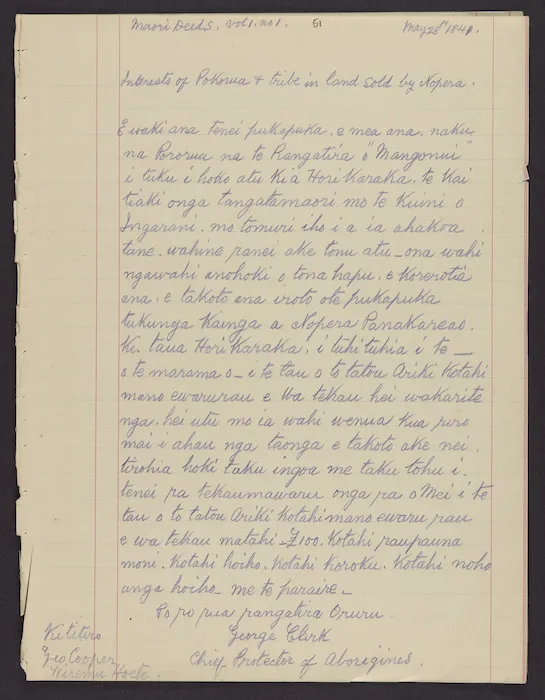 Maori Deeds. vol 1. no 1. 51 May 28th 1841.
Interests of Pokorua & tribe in land sold by Nopera.
E waki ana tenei pukapuka. e mea ana. naku
na Pororua na te Rangatira o "Mangonui"
i tuku i hoko atu Ki a Hori Karaka. te Kai
tiaki onga tangatamaori mo te Kuini o
Ingarani. mo tomuri iho i a ia ahakoa
tane. wahine ranei ake tonu atu - ona wahi
ngawahi anohoki o tona hapu. e Korerotia
ana. e takoto ana iroto ote pukapuka
tukunga Kainga a Nopera Panakareao.
Ki. taua Hori Karaka. i tuhi tuhia i te —
o te marama o - i te tau o to tatou Ariki Kotahi
mano ewarurau e Wa tekau hei wakarite
nga. hei utu mo ia wahi wenua Kua riro
mai i ahau nga taonga e takoto ake nei.
tirohia hoki taku ingoa me taku tohu i.
tenei ra tekaumawaru onga ra o Mei i te
tau o to tatou Ariki Kotahi mano ewaru rau
e wa tekau matahi - £100. Kotahi raupauna
moni. Kotahi hoiho. Kotahi Koroku. Kotahi noho
anga hoiho - me te paraire -
Po ro rua rangatira Oruru.
George Clerk
Chief Protector of Aborigines.
Ki titiro
Geo. Cooper
Wiremu Hoete.